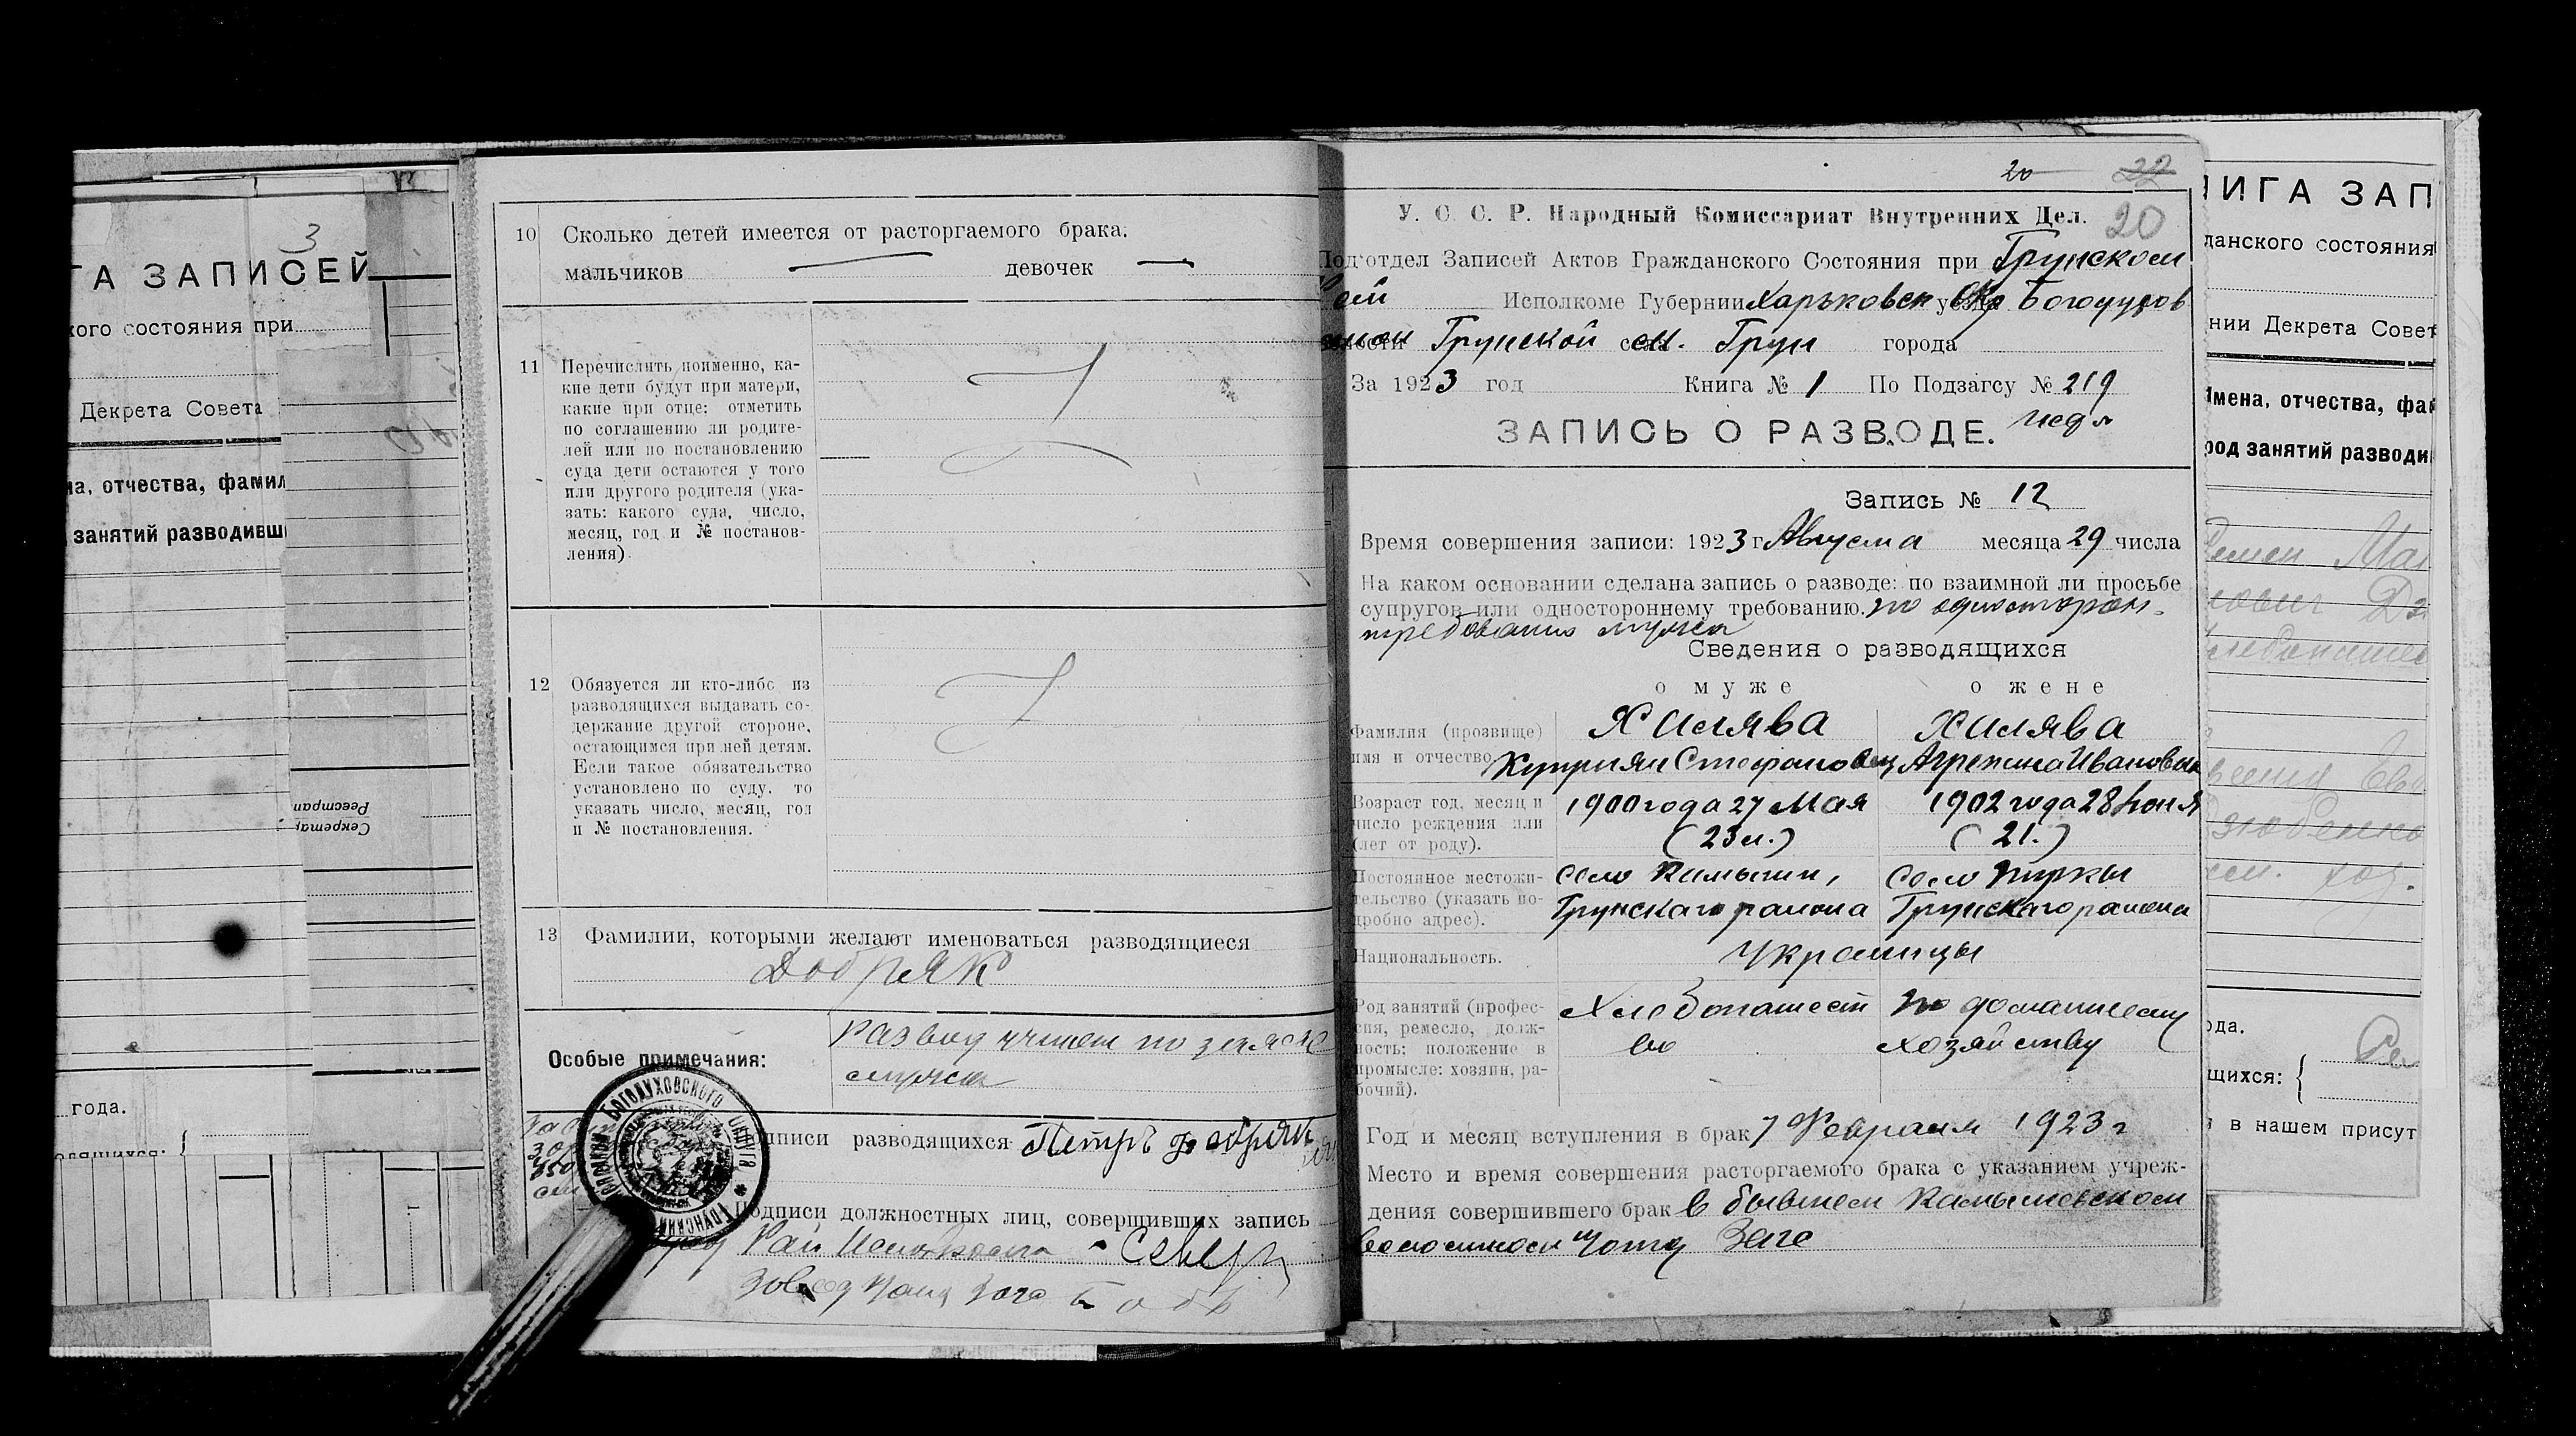 3
ГА ЗАПИСЕЙ
кого состояния при
Декрета Совета
на, отчества, фамил
занятий разводивши
Реестрац
Секретар
года.
10 Сколько детей имеется от расторгаемого брака:
мальчиков — девочек —
11 Перечислить поименно, ка-
кие дети будут при матери,
какие при отце: отметить
по соглашению ли родите-
лей или по постановлению
суда дети остаются у того
или другого родителя (ука-
зать: какого суда, число,
месяц, год и № постанов-
ления).
12 Обязуется ли кто-либо из
разводящихся выдавать со-
держание другой стороне,
остающимся при ней детям.
Если такое обязательство
установлено по суду, то
указать число, месяц, год
и № постановления.
13 Фамилии, которыми желают именоваться разводящиеся
Добряк
Особые примечания:
Развод учинен по
БОГОДУХОВСКОГО ОКРУГА * ГРУНСКИЙ
дписи разводящихся Петръ Добряк
Подписи должностных лиц, совершивших запись
Рай
20 22
У. С. С. Р. Народный Комиссариат Внутренних Дел.
20
Под'отдел Записей Актов Гражданского Состояния при Грунском
Рай Исполкоме Губернии Харьковск Окр Богодухов
Грунской села м. Грун города
За 1923 год Книга № 1 По Подзагсу № 219
ЗАПИСЬ О РАЗВОДЕ.
Запись № 12
Время совершения записи: 1923 г Августа месяца 29 числа
На каком основании сделана запись о разводе: по взаимной ли просьбе
супругов или одностороннему требованию. по односторон.
требованию мужа
Сведения о разводящихся
о муже о жене
Фамилия (прозвище) Хилява Хилява
имя и отчество. Куприян Стефанович Агрепина Ивановна
Возраст год, месяц и 1900 года 27 Мая 1902 года 28 Июня
число рождения или (23 л.) (21.)
(лет от роду).
Постоянное местожи- село Камыши, село Пирки
тельство (указать по- Грунскаго района Грунскаго района
дробно адрес).
Национальность. Украинцы
Род занятий (профес- Хлебопашест по домашнему
сия, ремесло, долж- во хозяйству
ность; положение в
промысле: хозяин, ра-
бочий).
Год и месяц вступления в брак 7 Февраля 1923 г
Место и время совершения расторгаемого брака с указанием учреж-
дения совершившего брак в бывшем Камышевском
волостном Загс
НИГА ЗАП
данского состояния
нии Декрета Совет
Имена, отчества, фам
род занятий разводи
ода.
щихся:
в нашем присут